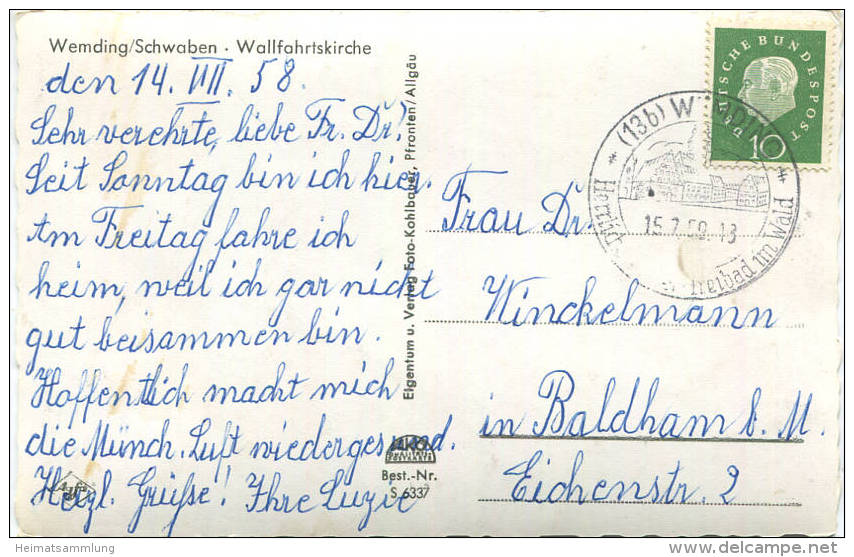 Wemding/Schwaben · Wallfahrtskirche
den 14. VII. 58.
Sehr verehrte, liebe Fr. Dr!
Seit Sonntag bin ich hier.
Am Freitag fahre ich
heim, weil ich gar nicht
gut beisammen bin.
Hoffentlich macht mich
die Münch. Luft wiedergesund.
Herzl. Grüße! Ihre Luzie
Eigentum u. Verlag Foto-Kohlbauer, Pfronten/Allgäu
AKO
QUALITÄTS-
POSTKARTE
Best.-Nr.
S 6337
DEUTSCHE BUNDESPOST
10
(13b) WEMDING
Freibad im Wald
Frau Dr.
Winckelmann
in Baldham b. M.
Eichenstr. 2
Heimatsammlung
delcampe.net